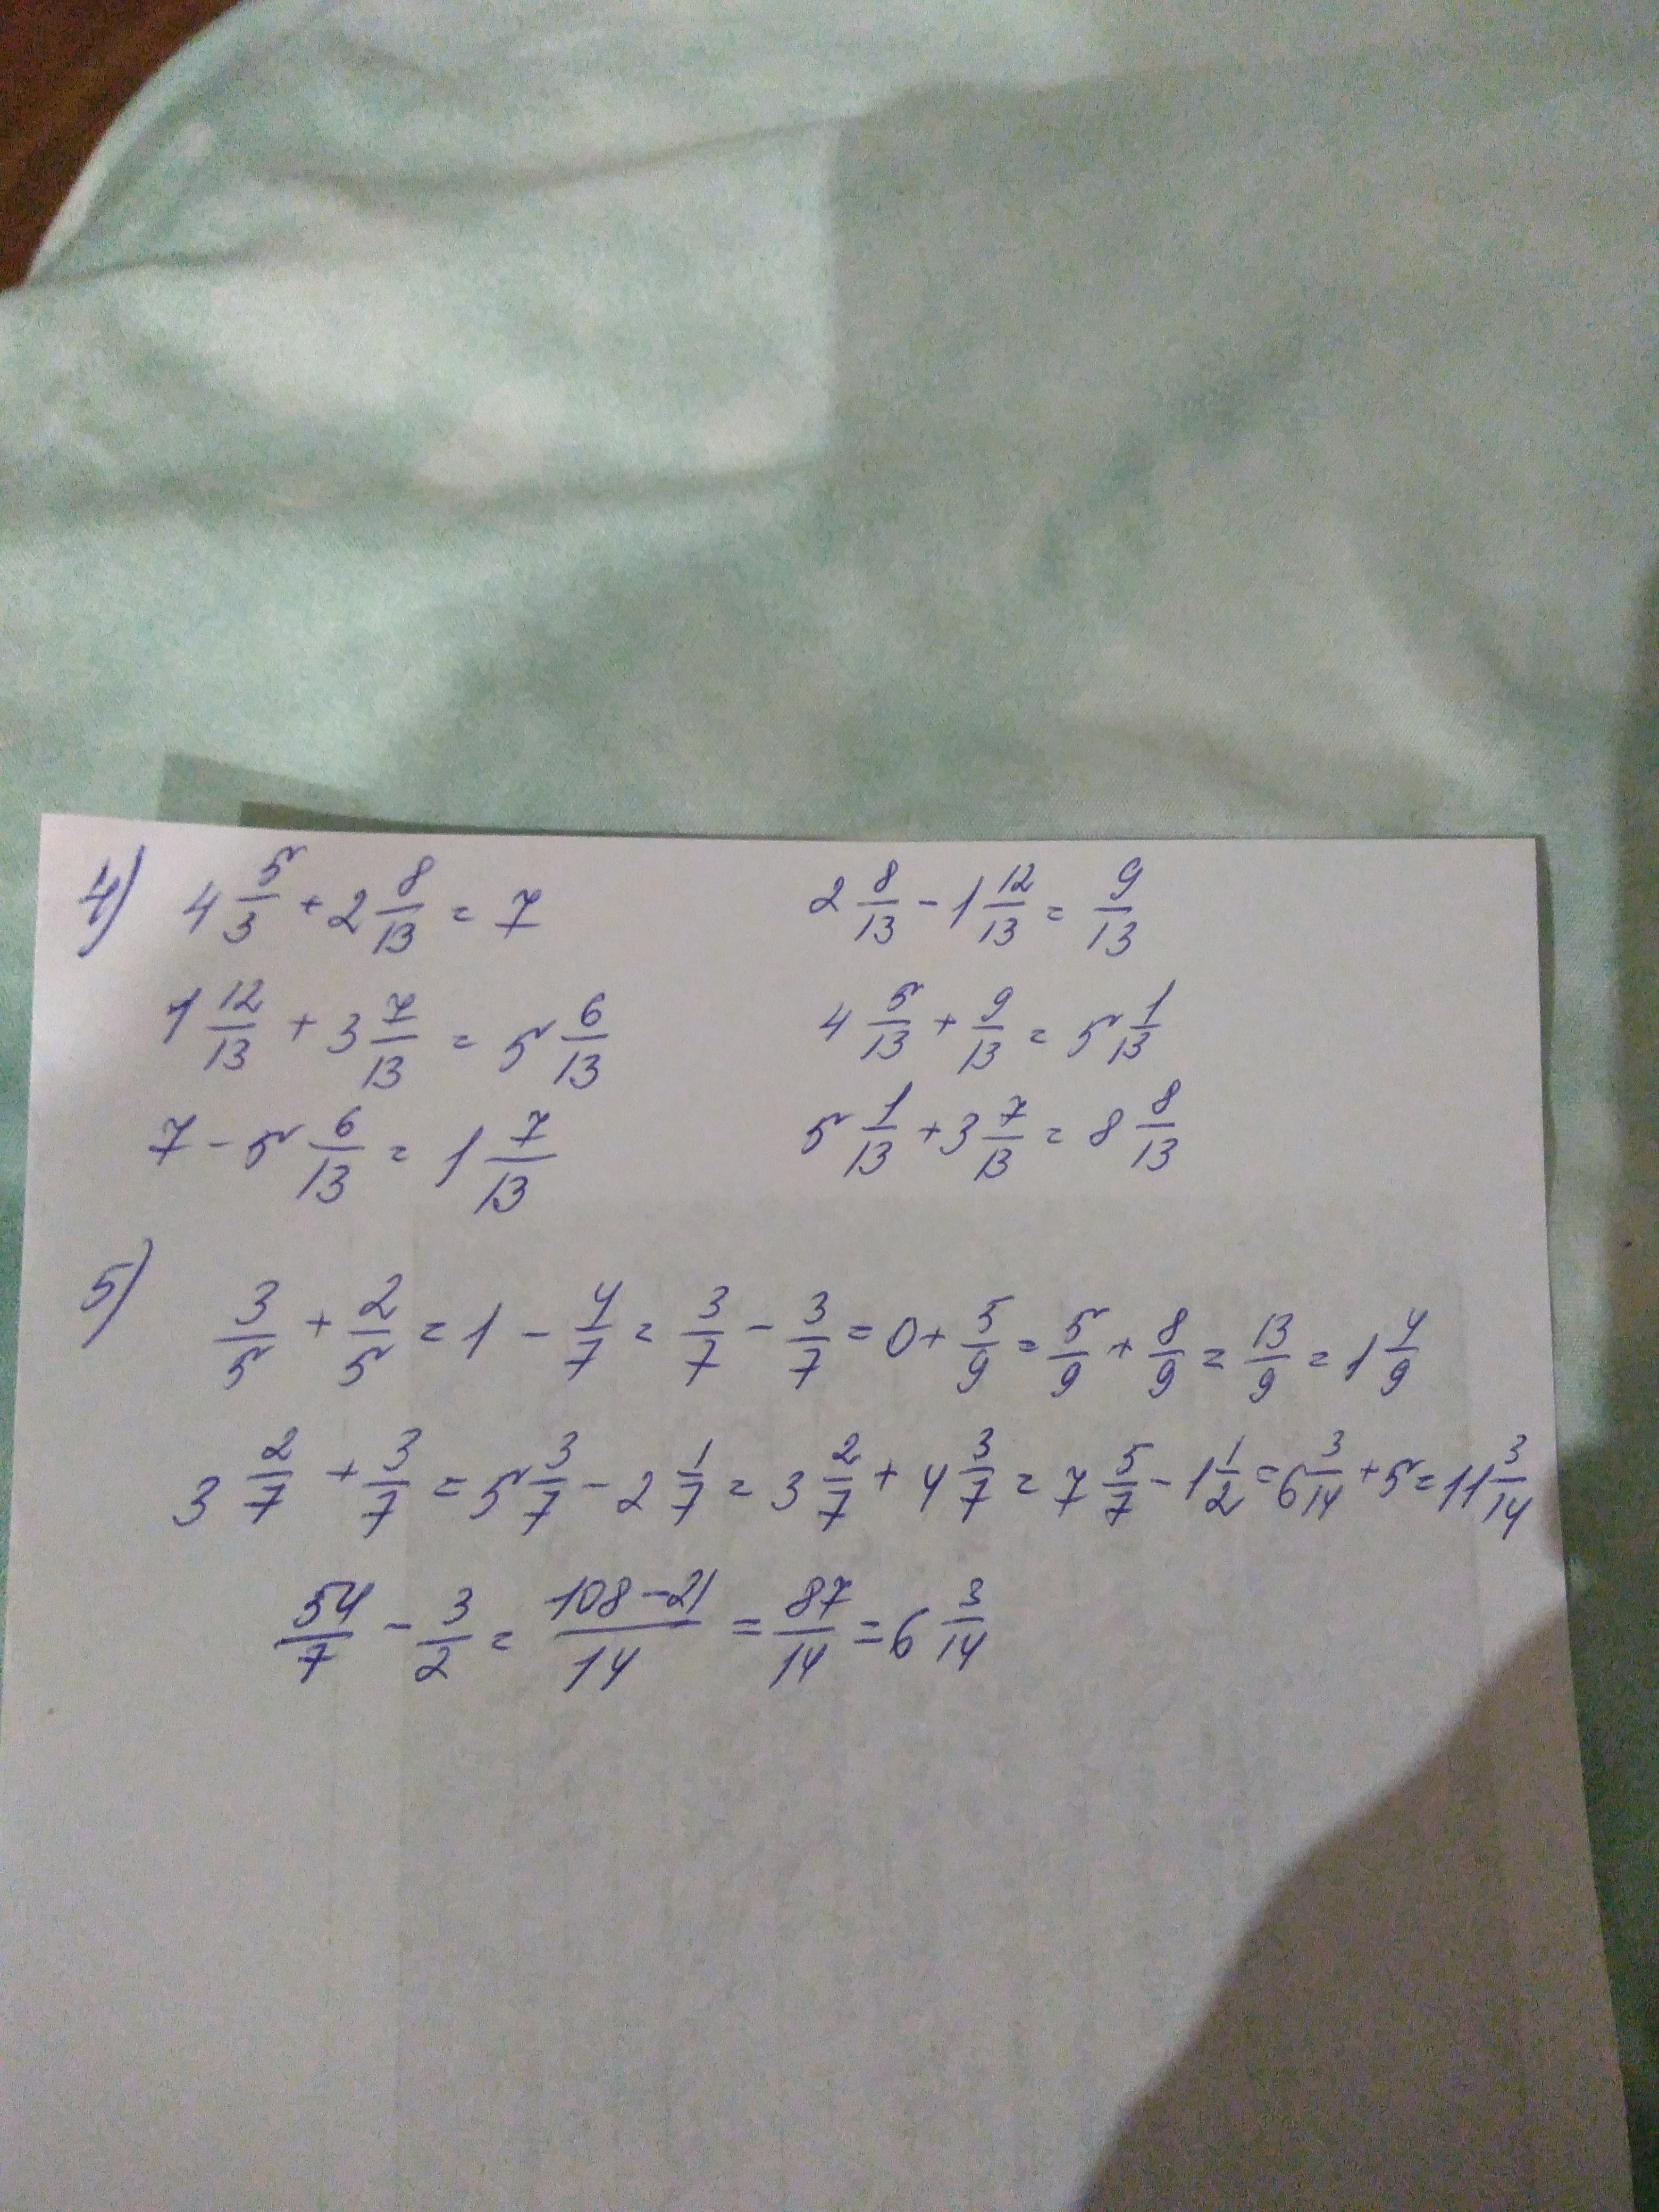 4) 4 5/3 + 2 8/13 = 7
1 12/13 + 3 7/13 = 5 6/13
7 - 5 6/13 = 1 7/13
2 8/13 - 1 12/13 = 9/13
4 5/13 + 9/13 = 5 1/13
5 1/13 + 3 7/13 = 8 8/13
5) 3/5 + 2/5 = 1 - 4/7 = 3/7 - 3/7 = 0 + 5/9 = 5/9 + 8/9 = 13/9 = 1 4/9
3 2/7 + 3/7 = 5 3/7 - 2 1/7 = 3 2/7 + 4 3/7 = 7 5/7 - 1 1/2 = 6 3/14 + 5 = 11 3/14
54/7 - 3/2 = 108-21/14 = 87/14 = 6 3/14